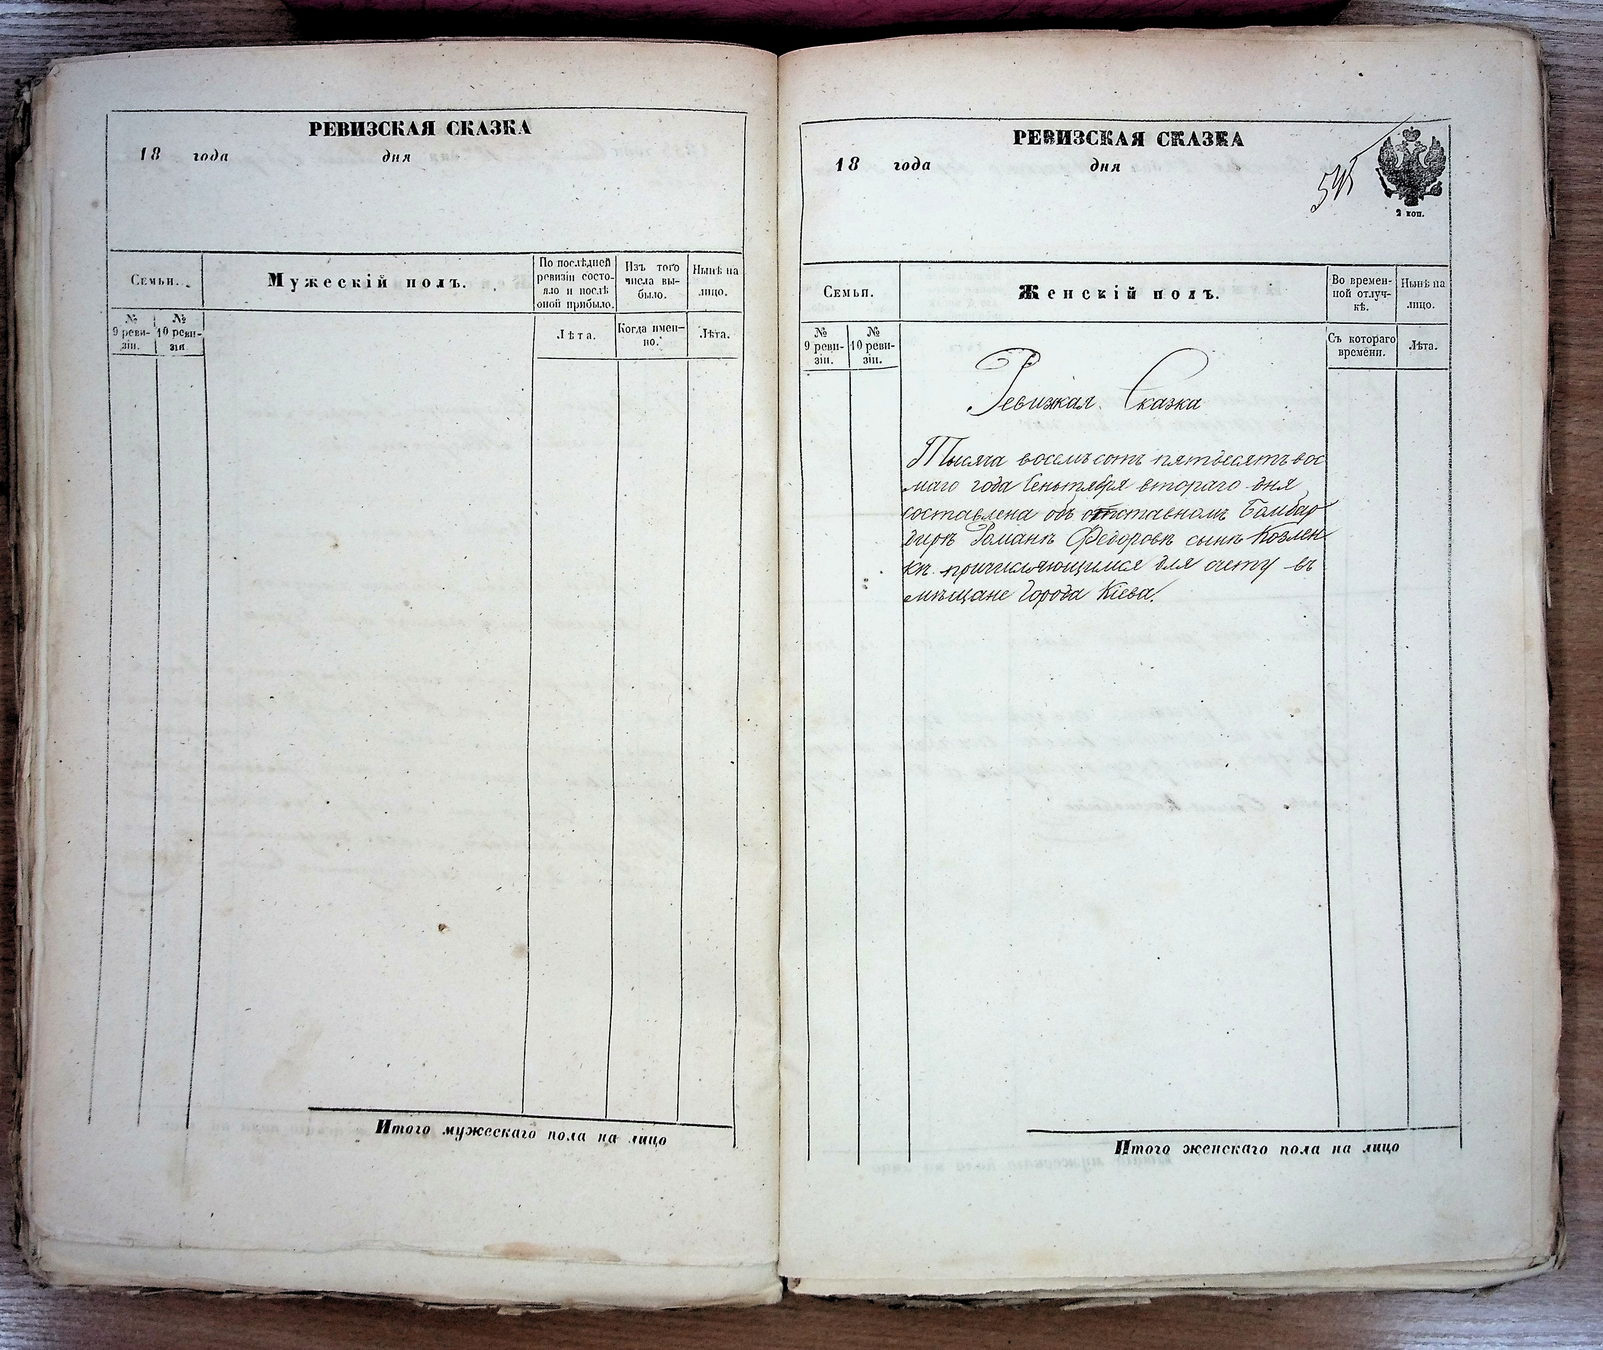 РЕВИЗСКАЯ СКАЗКА
18 года дня
Семьи.
Мужескій полъ.
По послѣдней
ревизіи состо-
яло и послѣ
оной прибыло.
Изъ того
числа вы-
было.
Нынѣ на
лицо.
№
9 реви-
зіи.
№
10 реви-
зіи.
Лѣта.
Когда имен-
но.
Лѣта.
Итого мужескаго пола на лицо
РЕВИЗСКАЯ СКАЗКА
18 года дня
2 коп.
Семьи.
Женскій полъ.
Во времен-
ной отлуч-
кѣ.
Нынѣ на
лицо.
№
9 реви-
зіи.
№
10 реви-
зіи.
Съ котораго
времени.
Лѣта.
Ревизкая Сказка
Тысяча восемьсотъ пятьдесятъ вос
маго года Сентября втораго дня
составлена объ отставномъ Бомбар
дирѣ Романѣ Федоровѣ сынѣ Козлен
кѣ причисляющимся для счету въ
мѣщане города Кіева.
Итого женскаго пола на лицо